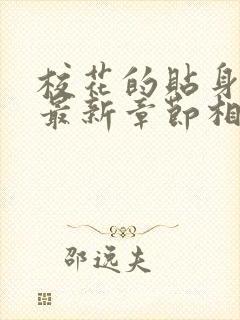 校花的贴身
最新章节相
邵逸夫